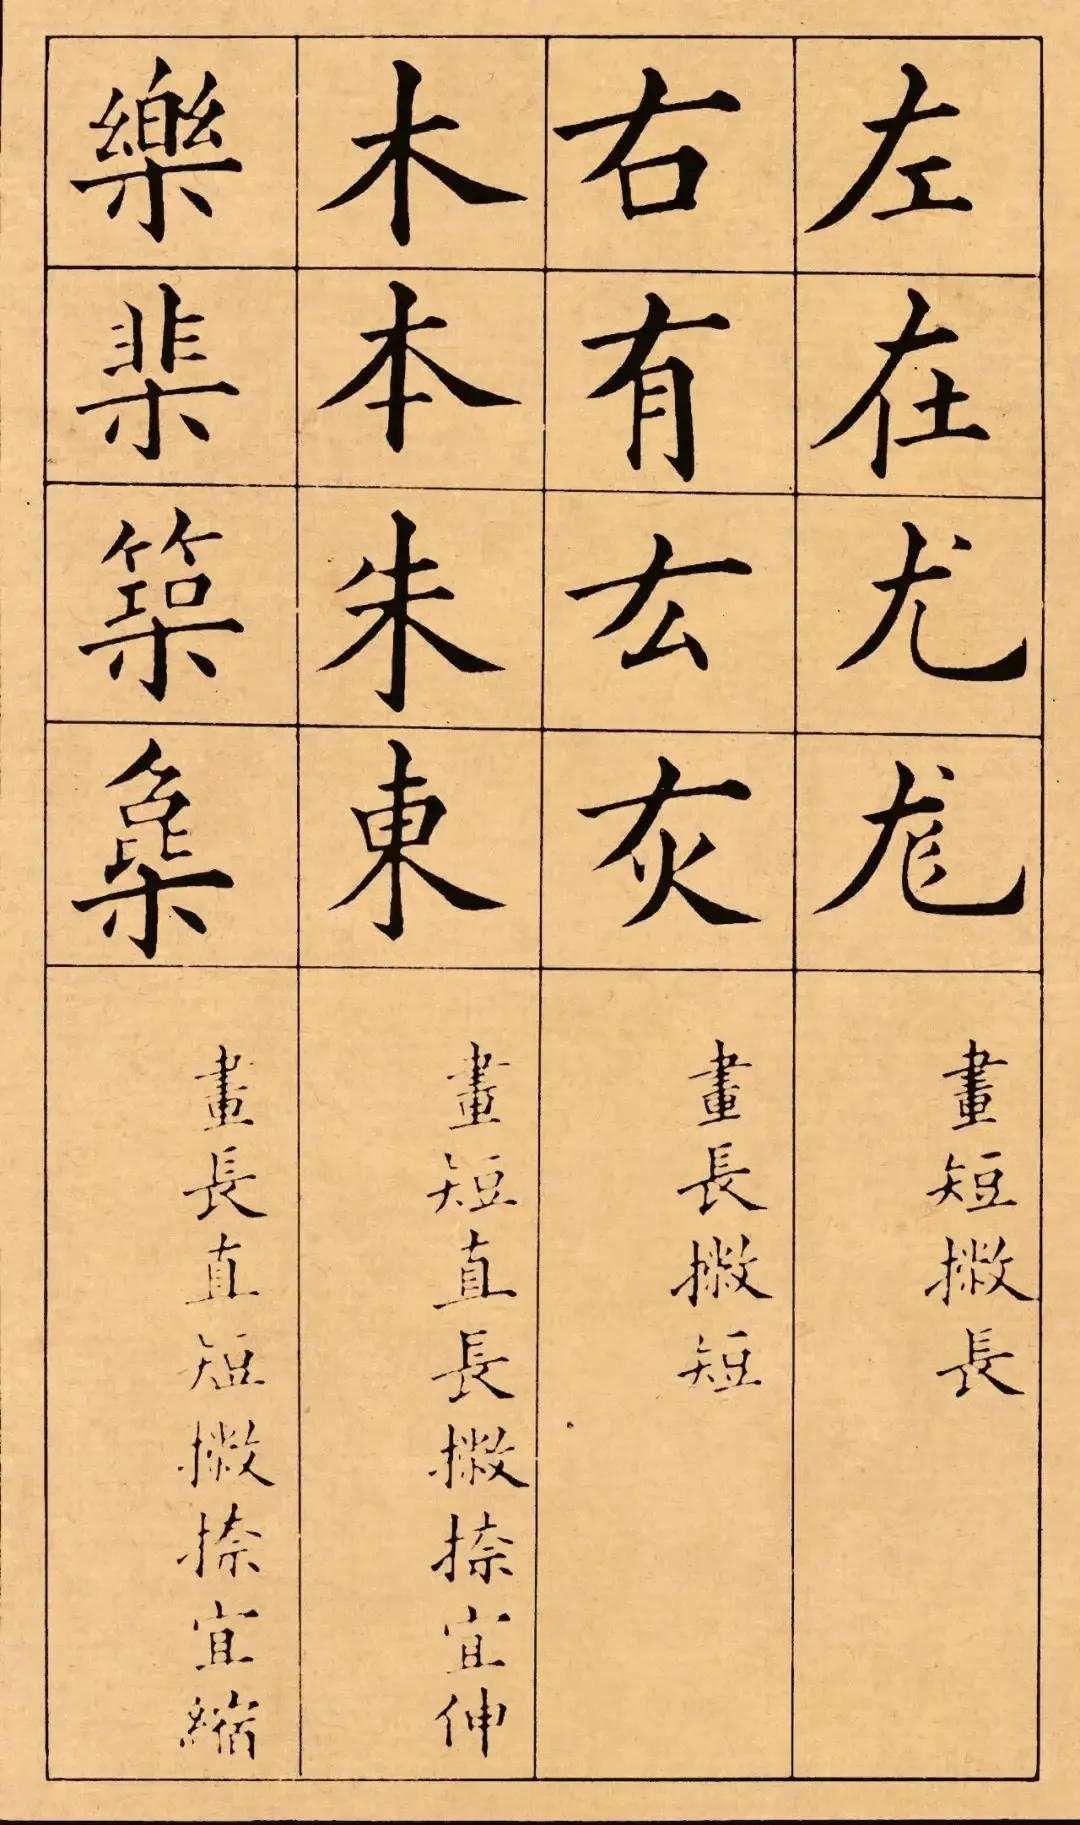 左在尤尨
畫短撇長
右有厷灰
畫長撇短
木本朱東
畫短直長撇捺宜伸
樂棐築
畫長直短撇捺宜縮